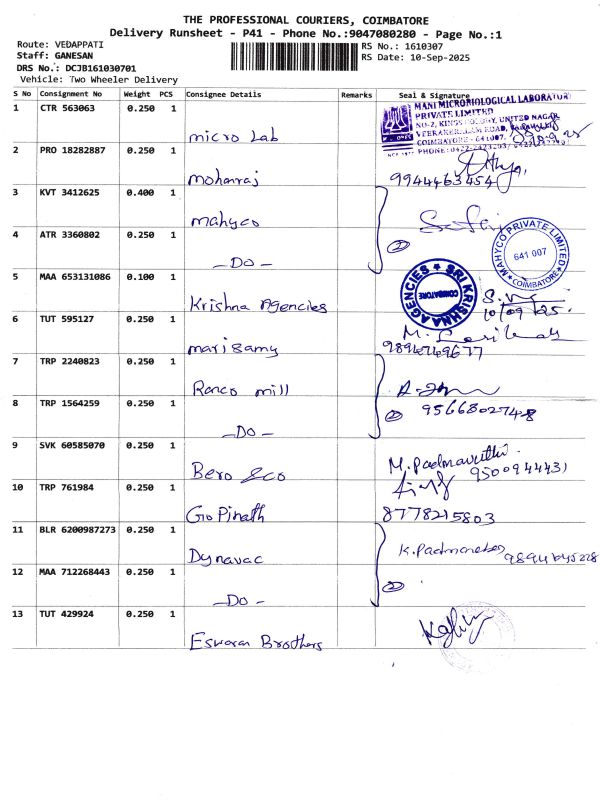 THE PROFESSIONAL COURIERS, COIMBATORE
Delivery Runsheet - P41 - Phone No.:9047080280 - Page No.:1
Route: VEDAPPATI
RS No.: 1610307
Staff: GANESAN
RS Date: 10-Sep-2025
DRS No.: DCJB161030701
Vehicle: Two Wheeler Delivery
S No Consignment No Weight PCS Consignee Details Remarks Seal & Signature
1 CTR 563063 0.250 1 micro Lab
MANI MICROBIOLOGICAL LABORATORY
PRIVATE LIMITED
NO-2, KINGS COLONY, UNITED NAGAR
VEERAKERALAM ROAD,
COIMBATORE - 641007.
2 PRO 18282887 0.250 1 mohanraj
9944463454
3 KVT 3412625 0.400 1 mahyco
MAHYCO PRIVATE LIMITED
641 007
COIMBATORE
4 ATR 3360802 0.250 1 -DO-
2
5 MAA 653131086 0.100 1 Krishna Agencies
SRI KRISHNA AGENCIES
COIMBATORE
10/09/25.
6 TUT 595127 0.250 1 marisamy
9894749677
7 TRP 2240823 0.250 1 Ranco mill
8 TRP 1564259 0.250 1 -DO-
2 9566802748
9 SVK 60585070 0.250 1 Bero &co
M. Padmavathi
9500944431
10 TRP 761984 0.250 1 Gopinath
8778215803
11 BLR 6200987273 0.250 1 Dynavac
9894645228
12 MAA 712268443 0.250 1 -DO-
2
13 TUT 429924 0.250 1 Eswaran Brothers